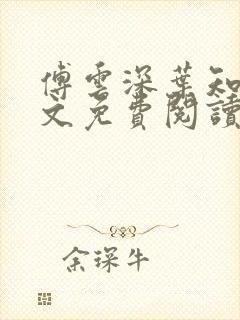 傅雲深葉知
文免費閱讀
余琛牛